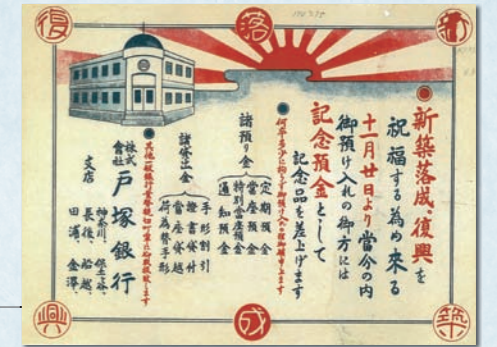 新
築
落
成
復
興
●新築落成、復興を
祝福する為め来る
十一月廿日より當分の内
御預け入れの御方には
記念預金として
記念品を差上げます
●何卒多少に拘らず御預け入れの程御願申上ます
諸預り金
定期預金
當座預金
特別當座預金
通知預金
諸貸出金
手形割引
證書貸付
當座貸越
荷為替手形
●其他一般銀行業務親切丁寧に御取扱致します
株式會社 戸塚銀行
支店
神奈川、保土ヶ谷、
長後、船越、
田浦、金澤、